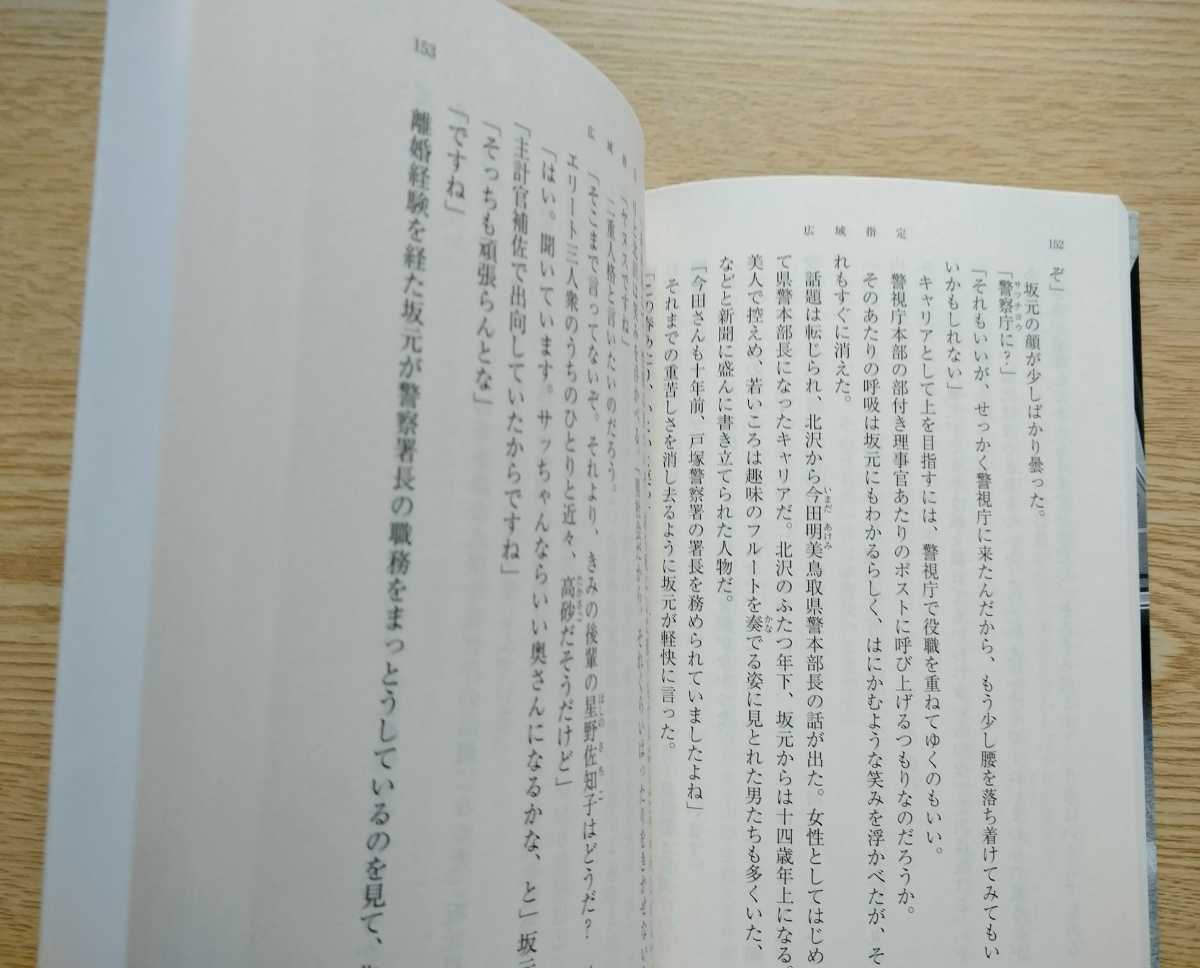 152
広域指定
ぞ」
坂元の顔が少しばかり曇った。
「警察庁に?」
サツチョウ
「それもいいが、せっかく警視庁に来たんだから、もう少し腰を落ち着けてみてもい
いかもしれない」
キャリアとして上を目指すには、警視庁で役職を重ねてゆくのもいい。
警視庁本部の部付き理事官あたりのポストに呼び上げるつもりなのだろうか。
そのあたりの呼吸は坂元にもわかるらしく、はにかむような笑みを浮かべたが、そ
れもすぐに消えた。
話題は転じられ、北沢から今田明美鳥取県警本部長の話が出た。女性としてはじめ
いまだ あけみ
て県警本部長になったキャリアだ。北沢のふたつ年下、坂元からは十四歳年上になる。
美人で控えめ、若いころは趣味のフルートを奏でる姿に見とれた男たちも多くいた、
かな
などと新聞に盛んに書き立てられた人物だ。
「今田さんも十年前、戸塚警察署の署長を務められていましたよね」
それまでの重苦しさを消し去るように坂元が軽快に言った。
153
広域
「ヤススですね」
二重人格と言いたいのだろう。
「そこまで言ってないぞ。それより、きみの後輩の星野佐知子はどうだ?
ほしの さちこ
エリート三人衆のうちのひとりと近々、高砂だそうだけど」
たかさご
「はい。聞いています。サッちゃんならいい奥さんになるかな、と」坂元
「主計官補佐で出向していたからですね」
「そっちも頑張らんとな」
「ですね」
離婚経験を経た坂元が警察署長の職務をまっとうしているのを見て、